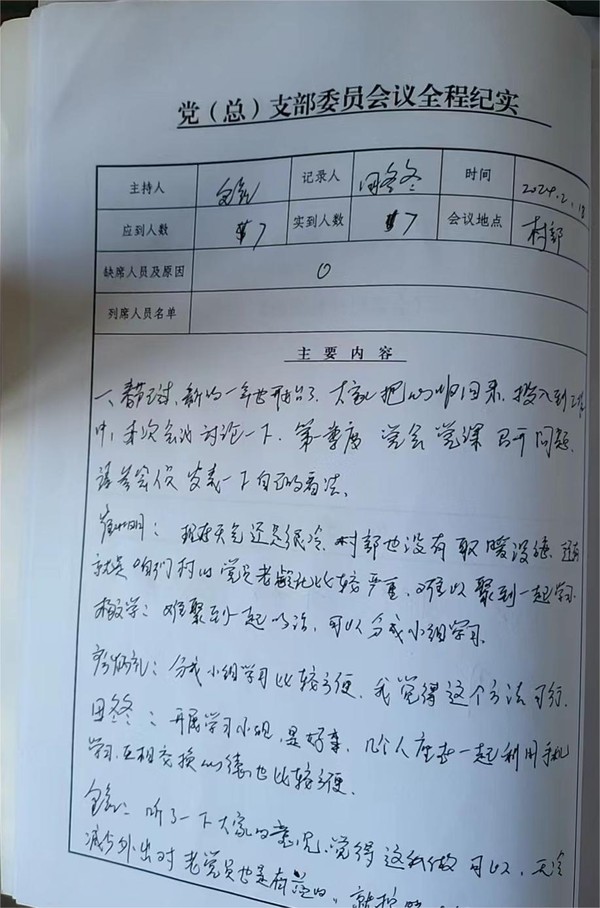 党（总）支部委员会议全程纪实
主持人 记录人 田冬冬 时间 2024.2.18
应到人数 7 实到人数 7 会议地点 村部
缺席人员及原因 0
列席人员名单
主要内容
一、春节已过，新的一年也开始了，大家把心收回来，投入到工作
中，本次会议讨论一下，第一季度 党会 党课 召开问题，
请参会人员 发表一下自己的看法。
明：现在天气还是很冷，村部也没有取暖设施，还有
就是咱们村的党员老龄化比较严重，难以聚到一起学习
学：难聚到一起的话，可以分成小组学习。
礼：分成小组学习比较方便，我觉得这个方法可行。
田冬冬：开展学习小组，是好事，几个人座在一起利用手机
学习，互相交换心得也比较方便。
听了一下大家的意见，觉得这样做可以，天冷
减少外出对老党员也是有益的，就按